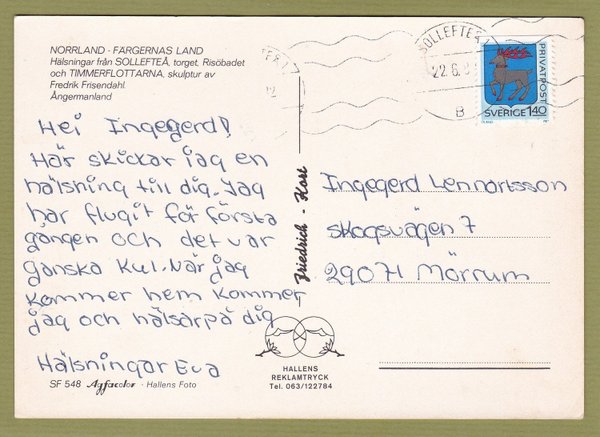 NORRLAND - FÄRGERNAS LAND
Hälsningar från SOLLEFTEÅ, torget, Risöbadet
och TIMMERFLOTTARNA, skulptur av
Fredrik Frisendahl.
Ångermanland
Hej Ingegerd!
Här skickar jag en
hälsning till dig. Jag
har flugit för första
gången och det var
ganska kul. När jag
kommer hem kommer
jag och hälsar på dig
Hälsningar Eva
SF 548 Agfacolor · Hallens Foto
Friedrich - Kort
HALLENS
REKLAMTRYCK
Tel. 063/122784
SOLLEFTEÅ 1
22.6.8
B
PRIVATPOST
SVERIGE 1.40
Ingegerd Lennartsson
Skogsvägen 7
29071 Mörrum